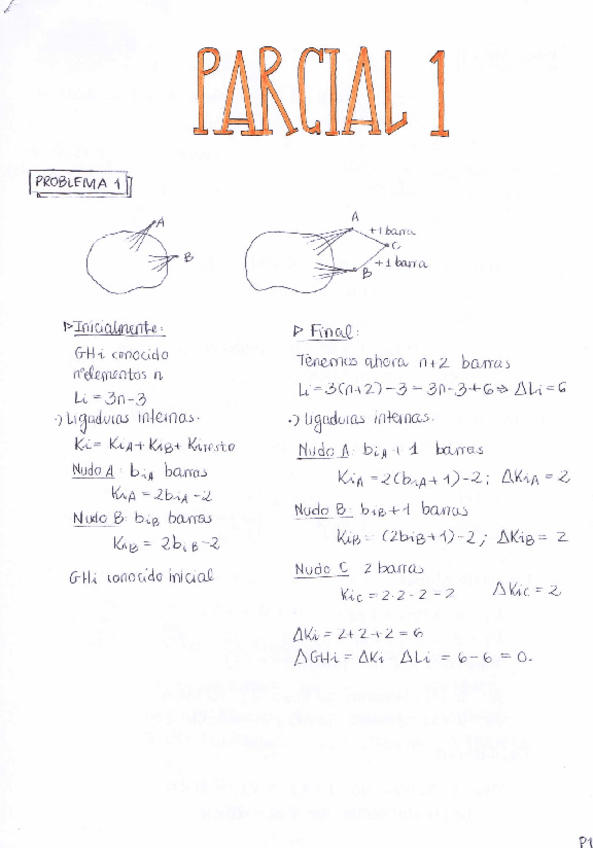 PARCIAL 1
PROBLEMA 1
A
B
A
+1 barra
C
+1 barra
B
▷ Inicialmente:
GHi conocido
nº elementos n
Li = 3n-3
·) Ligaduras internas.
Ki = KiA + KiB + Kiresto
Nudo A: biA barras
KiA = 2biA - 2
Nudo B: biB barras
KiB = 2biB - 2
GHi conocido inicial
▷ Final:
Tenemos ahora n+2 barras
Li = 3(n+2) - 3 = 3n - 3 + 6 ⇒ ΔLi = 6
·) Ligaduras internas.
Nudo A: biA + 1 barras
KiA = 2(biA + 1) - 2; ΔKiA = 2
Nudo B: biB + 1 barras
KiB = (2biB + 1) - 2; ΔKiB = 2
Nudo C 2 barras
KiC = 2·2 - 2 = 2 ΔKiC = 2
ΔKi = 2 + 2 + 2 = 6
ΔGHi = ΔKi - ΔLi = 6 - 6 = 0.
P1